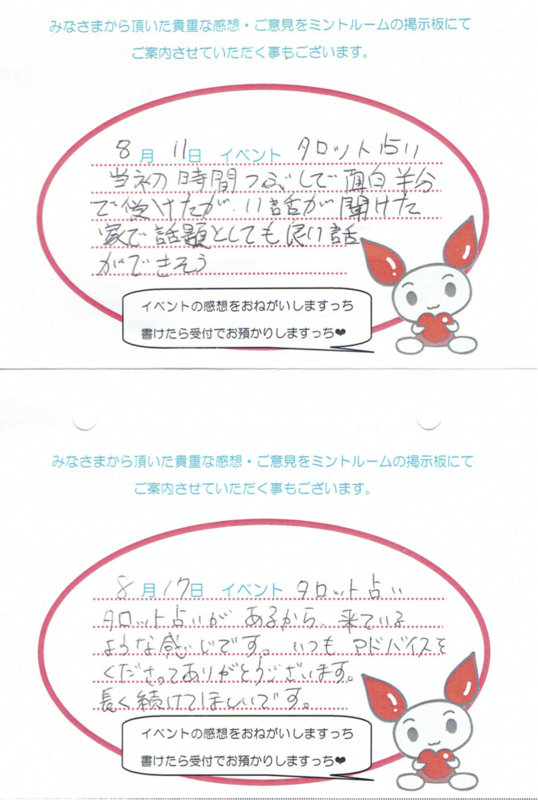 みなさまから頂いた貴重な感想・ご意見をミントルームの掲示板にて
ご案内させていただく事もございます。
8月11日 イベント タロット占い
当初時間つぶしで面白半分
で受けたが、いい話が聞けた
家で話題としても良い話
ができそう
イベントの感想をおねがいしますっち
書けたら受付でお預かりしますっち❤
みなさまから頂いた貴重な感想・ご意見をミントルームの掲示板にて
ご案内させていただく事もございます。
8月17日 イベント タロット占い
タロット占いが あるから、来ている
ような感じです。いつも アドバイスを
くださってありがとうございます。
長く続けてほしいです。
イベントの感想をおねがいしますっち
書けたら受付でお預かりしますっち❤